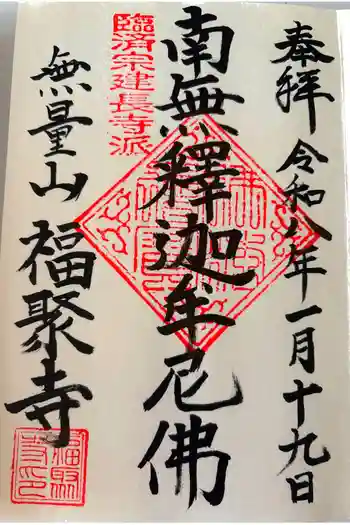 奉拝 令和八年一月十九日
臨済宗建長寺派
南無釋迦牟尼佛
無量山 福聚寺
福聚寺印